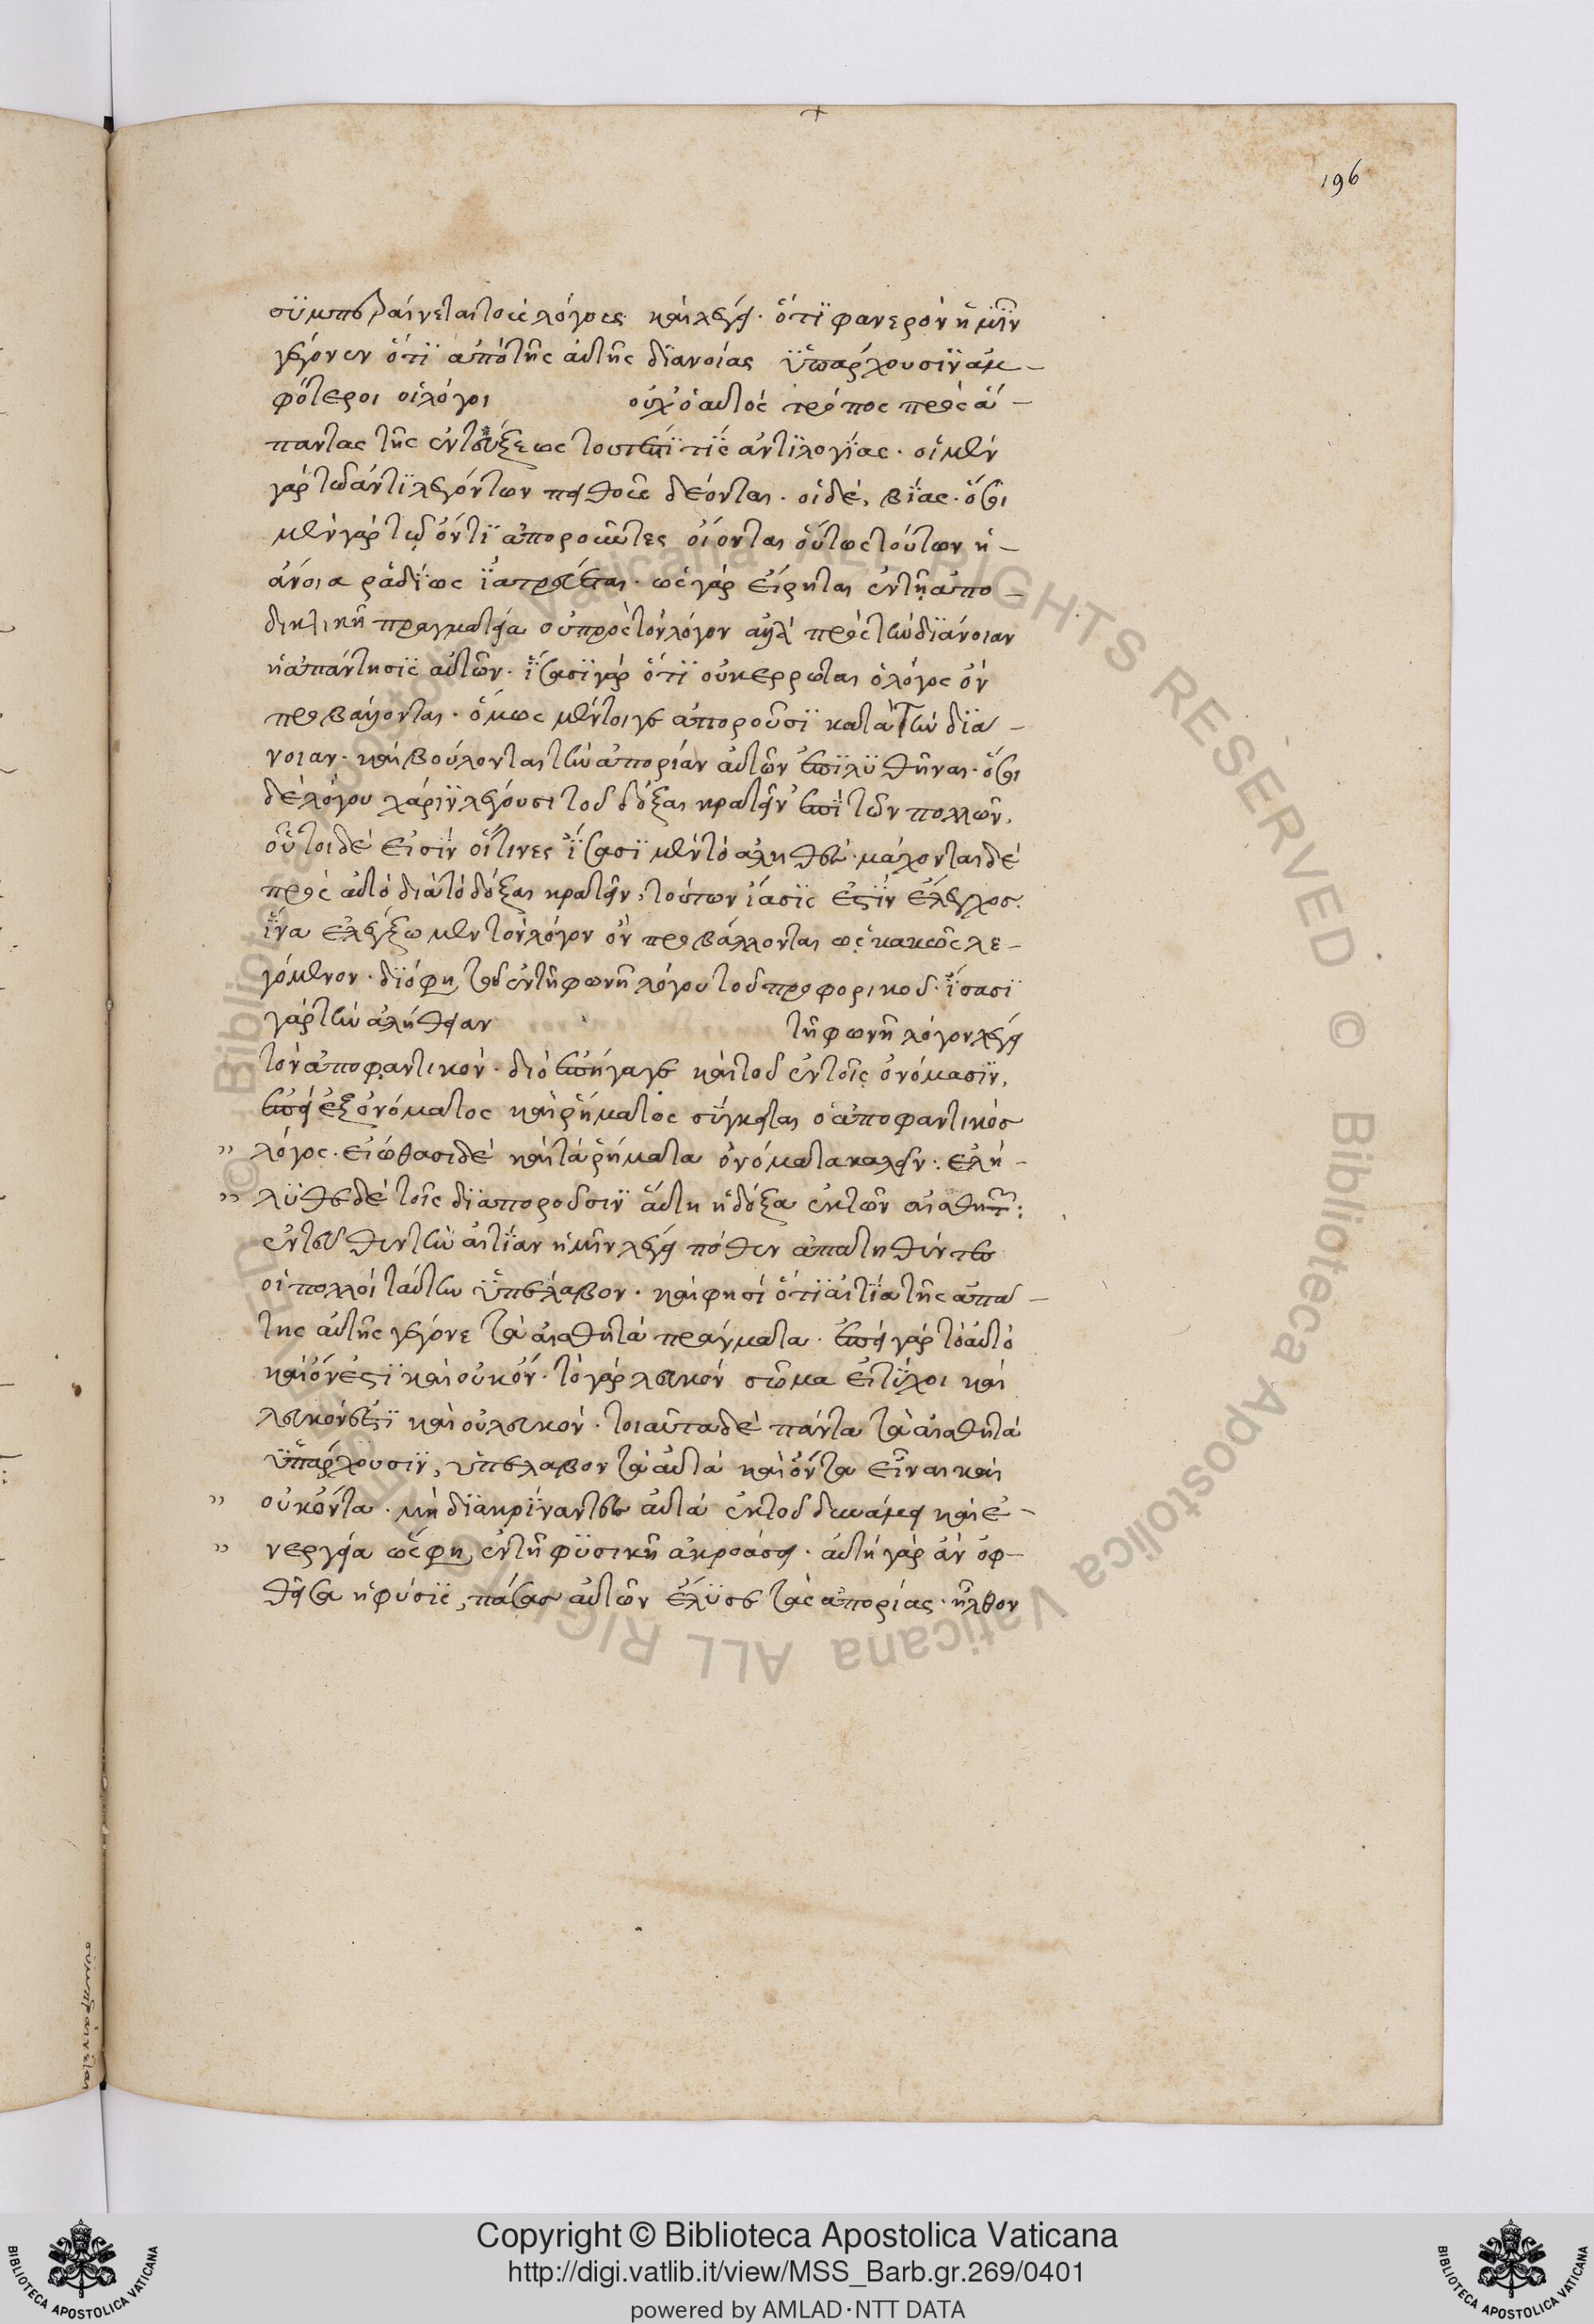 196
συμπεραίνεται τοὺς λόγους καὶ λέγει· ὅτι φανερὸν ἡμῖν
γέγονεν ὅτι ἀπὸ τῆς αὐτῆς διανοίας ὑπάρχουσιν ἀμ-
φότεροι οἱ λόγοι οὐχ ὁ αὐτὸς τρόπος πρὸς ἅ-
παντας τῆς ἐντεύξεως τουτέστι τῆς ἀντιλογίας· οἱ μὲν
γὰρ τῶν ἀντιλεγόντων πειθοῦς δέονται· οἱ δὲ, βίας· ὅσοι
μὲν γὰρ τῷ ὄντι ἀποροῦντες οἴονται οὕτως τούτων ἡ-
ἄνοια ῥαδίως ἰατρεύεται· ὡς γὰρ εἴρηται ἐν τῇ ἀπο-
δεικτικῇ πραγματείᾳ οὐ πρὸς τὸν λόγον ἀλλὰ πρὸς τὴν διάνοιαν
ἡ ἀπάντησις αὐτῶν· ἴσασι γὰρ ὅτι οὐκ ἔρρωται ὁ λόγος ὃν
προβάλλονται· ὅμως μέντοιγε ἀποροῦσι κατὰ τὴν διά-
νοιαν· καὶ βούλονται τὴν ἀπορίαν αὐτῶν ἐπιλυθῆναι· ὅσοι
δὲ λόγου χάριν λέγουσι τοῦ δόξαι κρατεῖν ἐπὶ τῶν πολλῶν,
οὗτοι δέ εἰσιν οἵτινες ἴσασι μὲν τὸ ἀληθὲς· μάχονται δὲ
πρὸς αὐτὸ διὰ τὸ δόξαι κρατεῖν, τούτων ἴασις ἐστὶν ἔλεγχος·
ἵνα ἐλέγξω μὲν τὸν λόγον ὃν προβάλλονται ὡς κακῶς λε-
γόμενον· διό φησι τοῦ ἐν τῇ φωνῇ λόγου τοῦ προφορικοῦ· ἴσασι
γὰρ τὴν ἀλήθειαν τῇ φωνῇ λόγον λέγει
τὸν ἀποφαντικὸν· διὸ ἐπήγαγε καὶ τοῦ ἐν τοῖς ὀνόμασιν,
ἐπεὶ ἐξ ὀνόματος καὶ ῥήματος σύγκειται ὁ ἀποφαντικὸς
" λόγος· εἰώθασι δὲ καὶ τὰ ῥήματα ὀνόματα καλεῖν: ἐλή-
" λυθε δὲ τοῖς διαποροῦσιν αὕτη ἡ δόξα ἐκ τῶν αἰσθητῶν:
ἐντεῦθεν τὴν αἰτίαν ἡμῖν λέγει πόθεν ἀπατηθέντες
οἱ πολλοὶ ταύτην ὑπέλαβον· καὶ φησὶ ὅτι αἰτία τῆς ἀπά-
της αὐτῆς γέγονε τὰ αἰσθητὰ πράγματα· ἐπεὶ γὰρ τὸ αὐτὸ
καὶ ὄν ἐστι καὶ οὐκ ὄν· τὸ γὰρ λευκὸν σῶμα εἰ τύχοι καὶ
λευκόν ἐστι καὶ οὐ λευκόν· τοιαῦτα δὲ πάντα τὰ αἰσθητὰ
ὑπάρχουσιν, ὑπέλαβον τὰ αὐτὰ καὶ ὄντα εἶναι καὶ
" οὐκ ὄντα· μὴ διακρίναντες αὐτὰ ἐκ τοῦ δυνάμει καὶ ἐ-
" νεργείᾳ ὡς ἔφη, ἐν τῇ φυσικῇ ἀκροάσει· αὐτὴ γὰρ ἂν ὀφ-
θεῖσα ἡ φύσις, πάσας αὐτῶν ἔλυσε τὰς ἀπορίας· ἦλθον
συμπεραίνεται
© Biblioteca Apostolica Vaticana ALL RIGHTS RESERVED
Copyright © Biblioteca Apostolica Vaticana
http://digi.vatlib.it/view/MSS_Barb.gr.269/0401
powered by AMLAD·NTT DATA
BIBLIOTECA APOSTOLICA VATICANA
BIBLIOTECA APOSTOLICA VATICANA